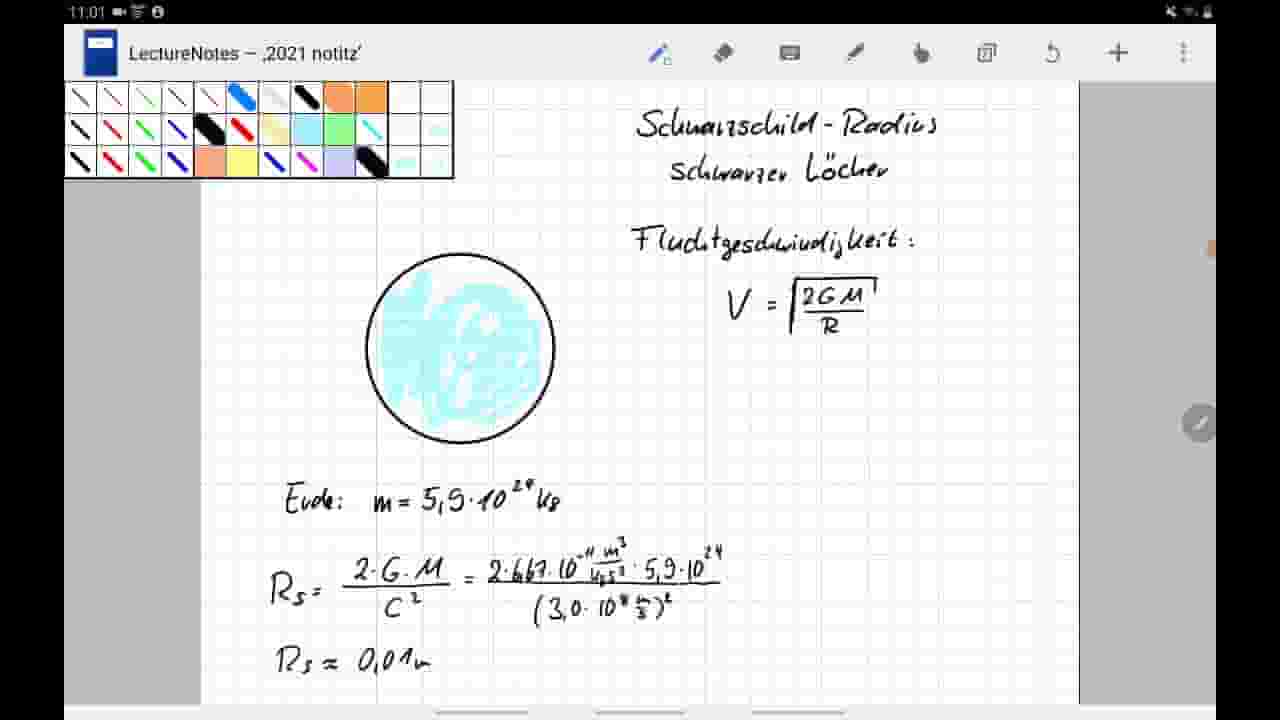 11:01
LectureNotes – ‚2021 notitz‘
Schwarzschild-Radius
schwarzer Löcher
Fluchtgeschwindigkeit:
V = √(2GM/R)
Erde: m = 5,9·10²⁴ kg
Rs = 2·G·M/C² = 2·6,67·10⁻¹¹ m³/kgs²·5,9·10²⁴/(3,0·10⁸ m/s)²
Rs ≈ 0,01m